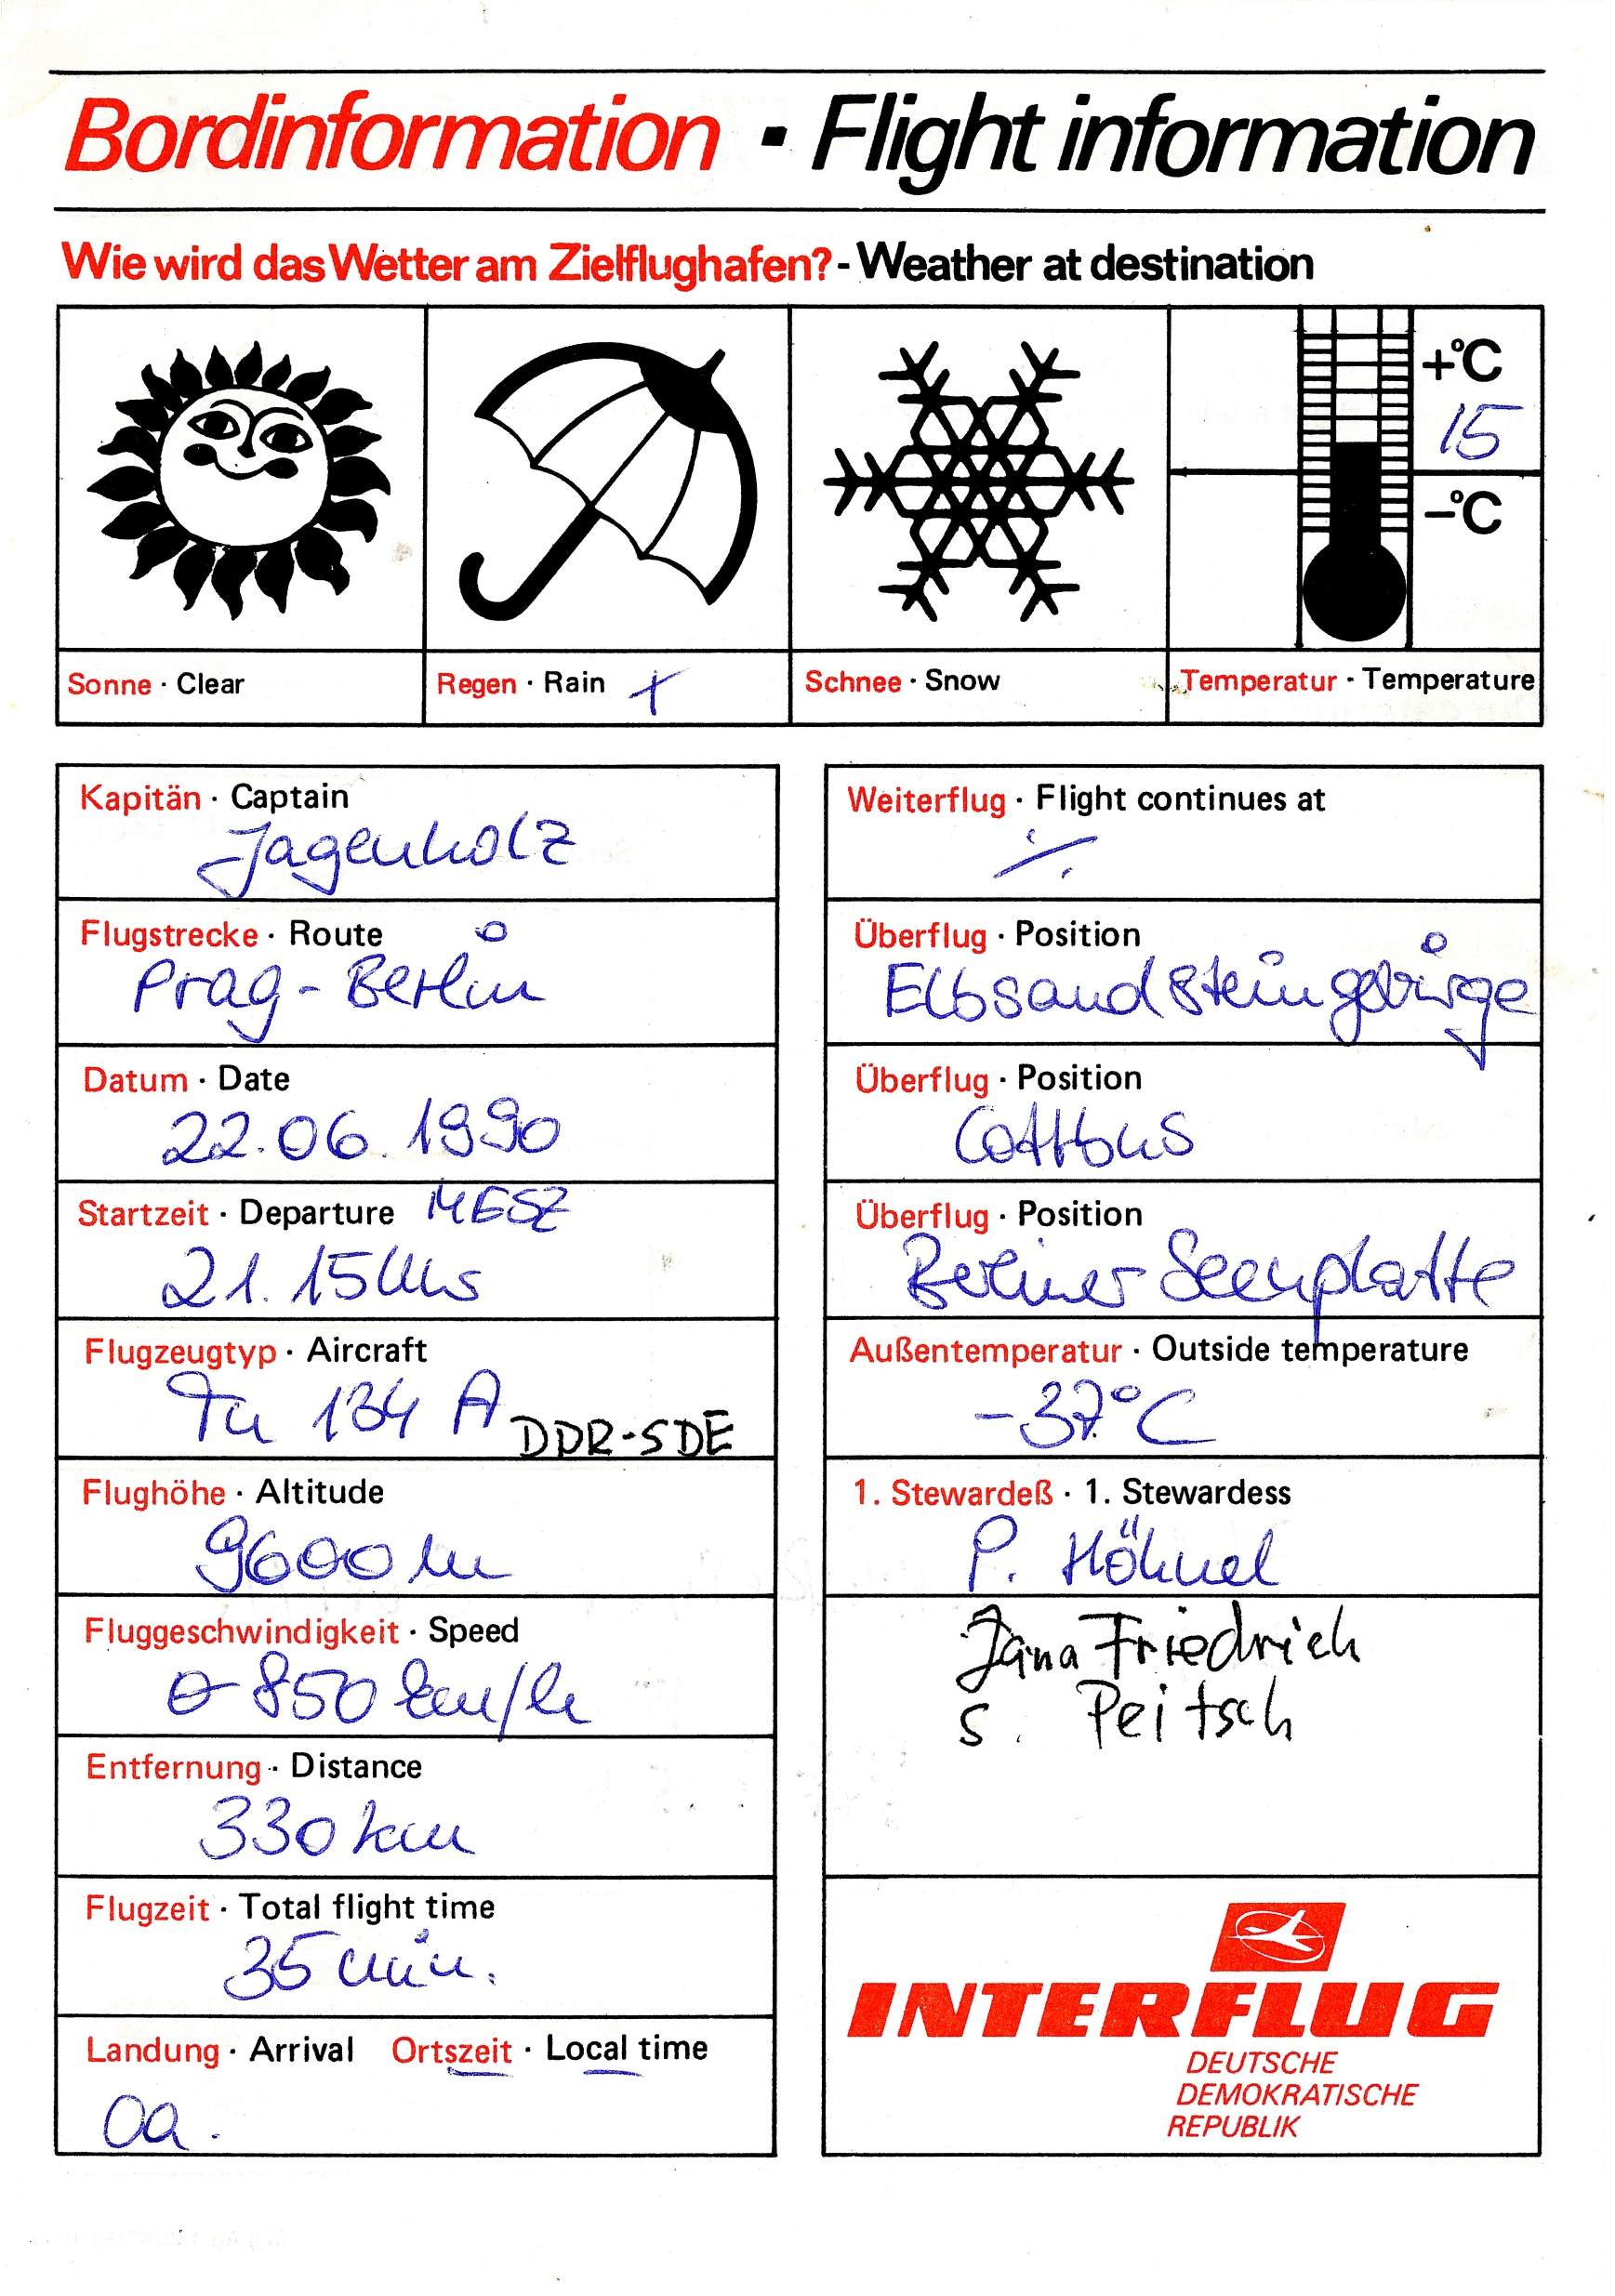 Bordinformation · Flight information
Wie wird das Wetter am Zielflughafen? - Weather at destination
+°C
15
-°C
Sonne · Clear
Regen · Rain +
Schnee · Snow
Temperatur · Temperature
Kapitän · Captain
Jagenholz
Flugstrecke · Route
Prag - Berlin
Datum · Date
22.06.1990
Startzeit · Departure MESZ
21.15 Uhr
Flugzeugtyp · Aircraft
Tu 134 A DDR-SDE
Flughöhe · Altitude
9600 m
Fluggeschwindigkeit · Speed
∅ 850 km/h
Entfernung · Distance
330 km
Flugzeit · Total flight time
35 min.
Landung · Arrival Ortszeit · Local time
ca.
Weiterflug · Flight continues at
./.
Überflug · Position
Elbsandsteingebirge
Überflug · Position
Cottbus
Überflug · Position
Berliner Seenplatte
Außentemperatur · Outside temperature
-37°C
1. Stewardeß · 1. Stewardess
P. Höhnel
Jana Friedrich
S. Peitsch
INTERFLUG
DEUTSCHE
DEMOKRATISCHE
REPUBLIK